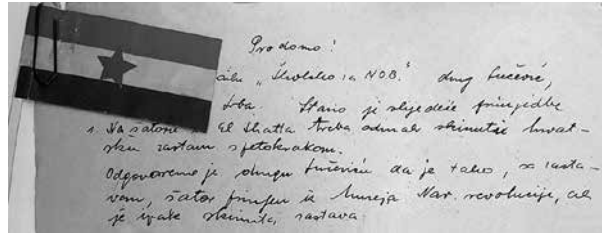 Pro domo!
"Školstvo u NOB." drug Lučević,
Srba. Stavio je slijedeće primjedbe
1. Na šatoru iz El Shatta treba odmah skinuti hrvat-
sku zastavu s petokrakom.
Odgovoreno je drugu da je tako, sa zasta-
vom, šator primljen iz Muzeja Nar. revolucije, ali
je ipak skinuta zastava.